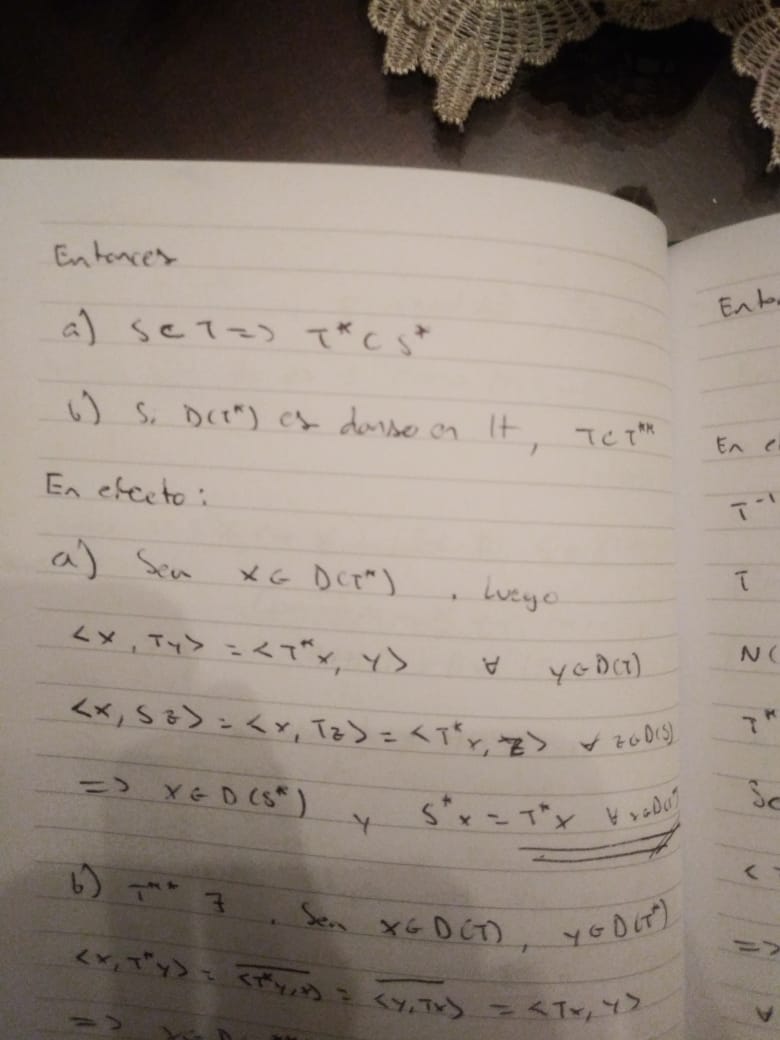 Entonces
a) S ⊂ T => T* ⊂ S*
b) Si D(T*) es denso en H, T ⊂ T**
En efecto:
a) Sea x ∈ D(T*). Luego
<x, Ty> = <T*x, y> ∀ y ∈ D(T)
<x, Sz> = <x, Tz> = <T*x, z> ∀ z ∈ D(S)
=> x ∈ D(S*) y S*x = T*x ∀ x ∈ D(T*)
b) T** ∃. Sea x ∈ D(T), y ∈ D(T*)
<x, T*y> = \overline{<T*y, x>} = \overline{<y, Tx>} = <Tx, y>
=>
En
T^-1
T
N(
T*
<
=>
∀